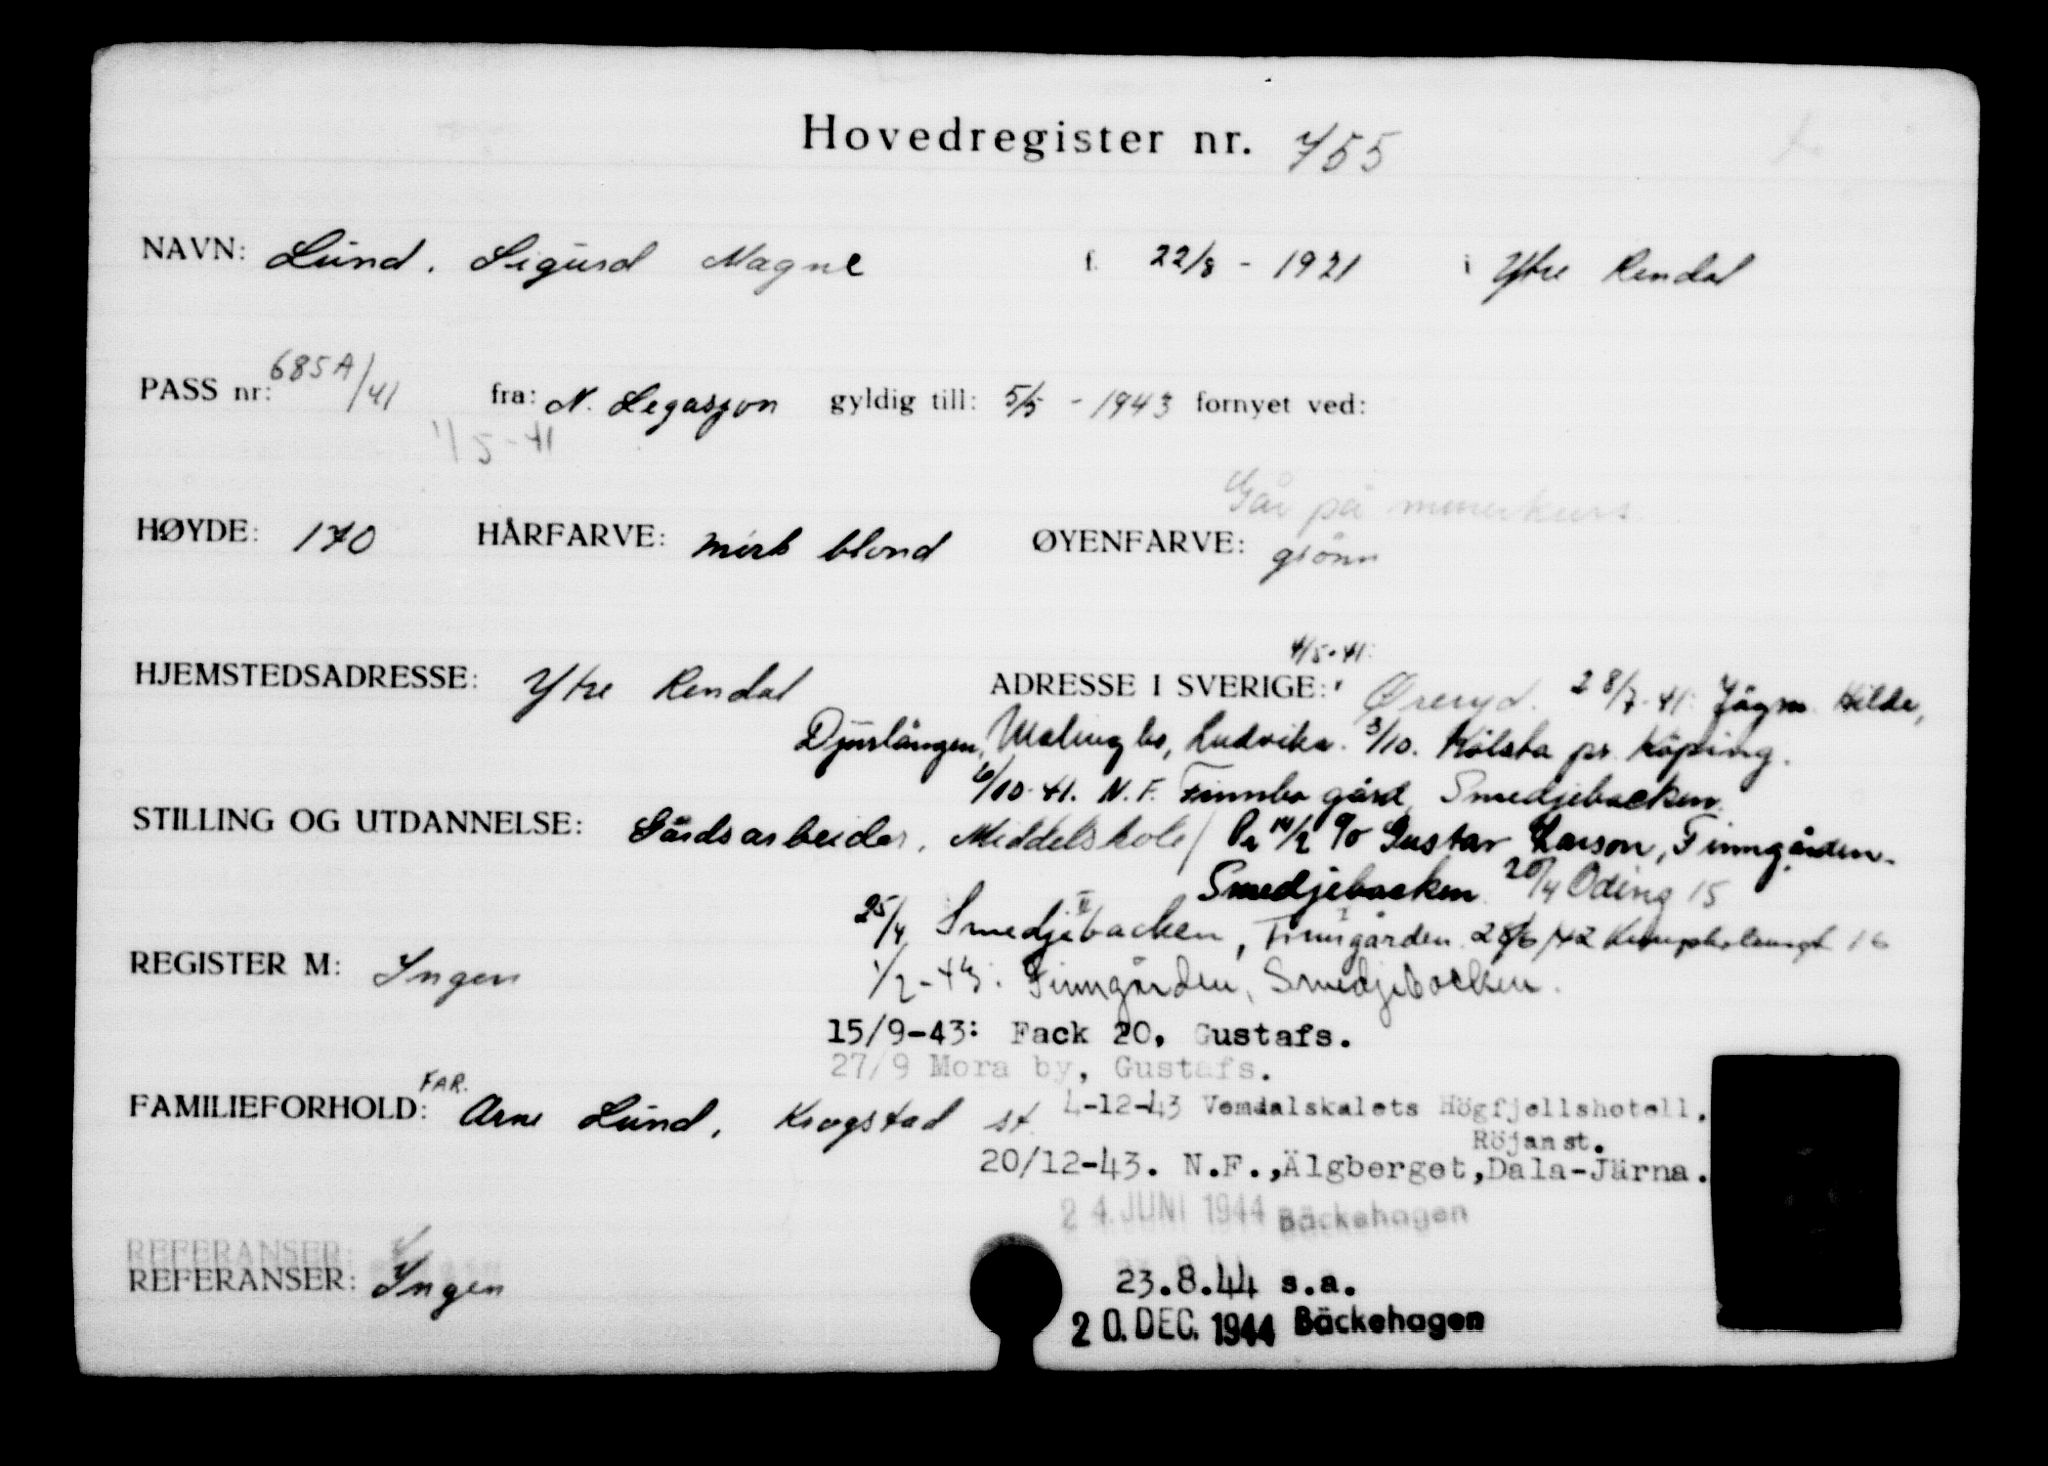 Hovedregister nr. 755
NAVN: Lund, Sigurd Magne f. 22/8 - 1921 i Ytre Rendal
PASS nr: 685A/41 fra: N. Legasjon gyldig till: 5/5 - 1943 fornyet ved:
1/5-41
Går på
HØYDE: 170 HÅRFARVE: mörk blond ØYENFARVE: grönn
4/5-41:
HJEMSTEDSADRESSE: Ytre Rendal ADRESSE I SVERIGE: Øreryd. 28/7-41: Jägm. Hilde,
Djurlången, Malingbo, Ludvika. 3/10. Kölsta pr. Köping.
6/10-41. N.F. Finnbo gård, Smedjebacken.
STILLING OG UTDANNELSE: Gårdsarbeider, Middelskole / Pr 14/2 c/o Gustav Larson, Finngården.
Smedjebacken 20/4 Öding 15
25/4 Smedjebacken, Finngården 28/6/42 16
REGISTER M: Ingen
1/2-43: Finngården, Smedjebacken.
15/9-43: Fack 20, Gustafs.
27/9 Mora by, Gustafs.
FAMILIEFORHOLD: FAR. Arne Lund, Krogstad st.
4-12-43 Vemdalskalets Högfjellshotell,
Röjan st.
20/12-43. N.F., Älgberget, Dala-Järna.
24. JUNI 1944 Bäckehagen
REFERANSER:
REFERANSER: Ingen
23.8.44 s.a.
20. DEC. 1944 Bäckehagen